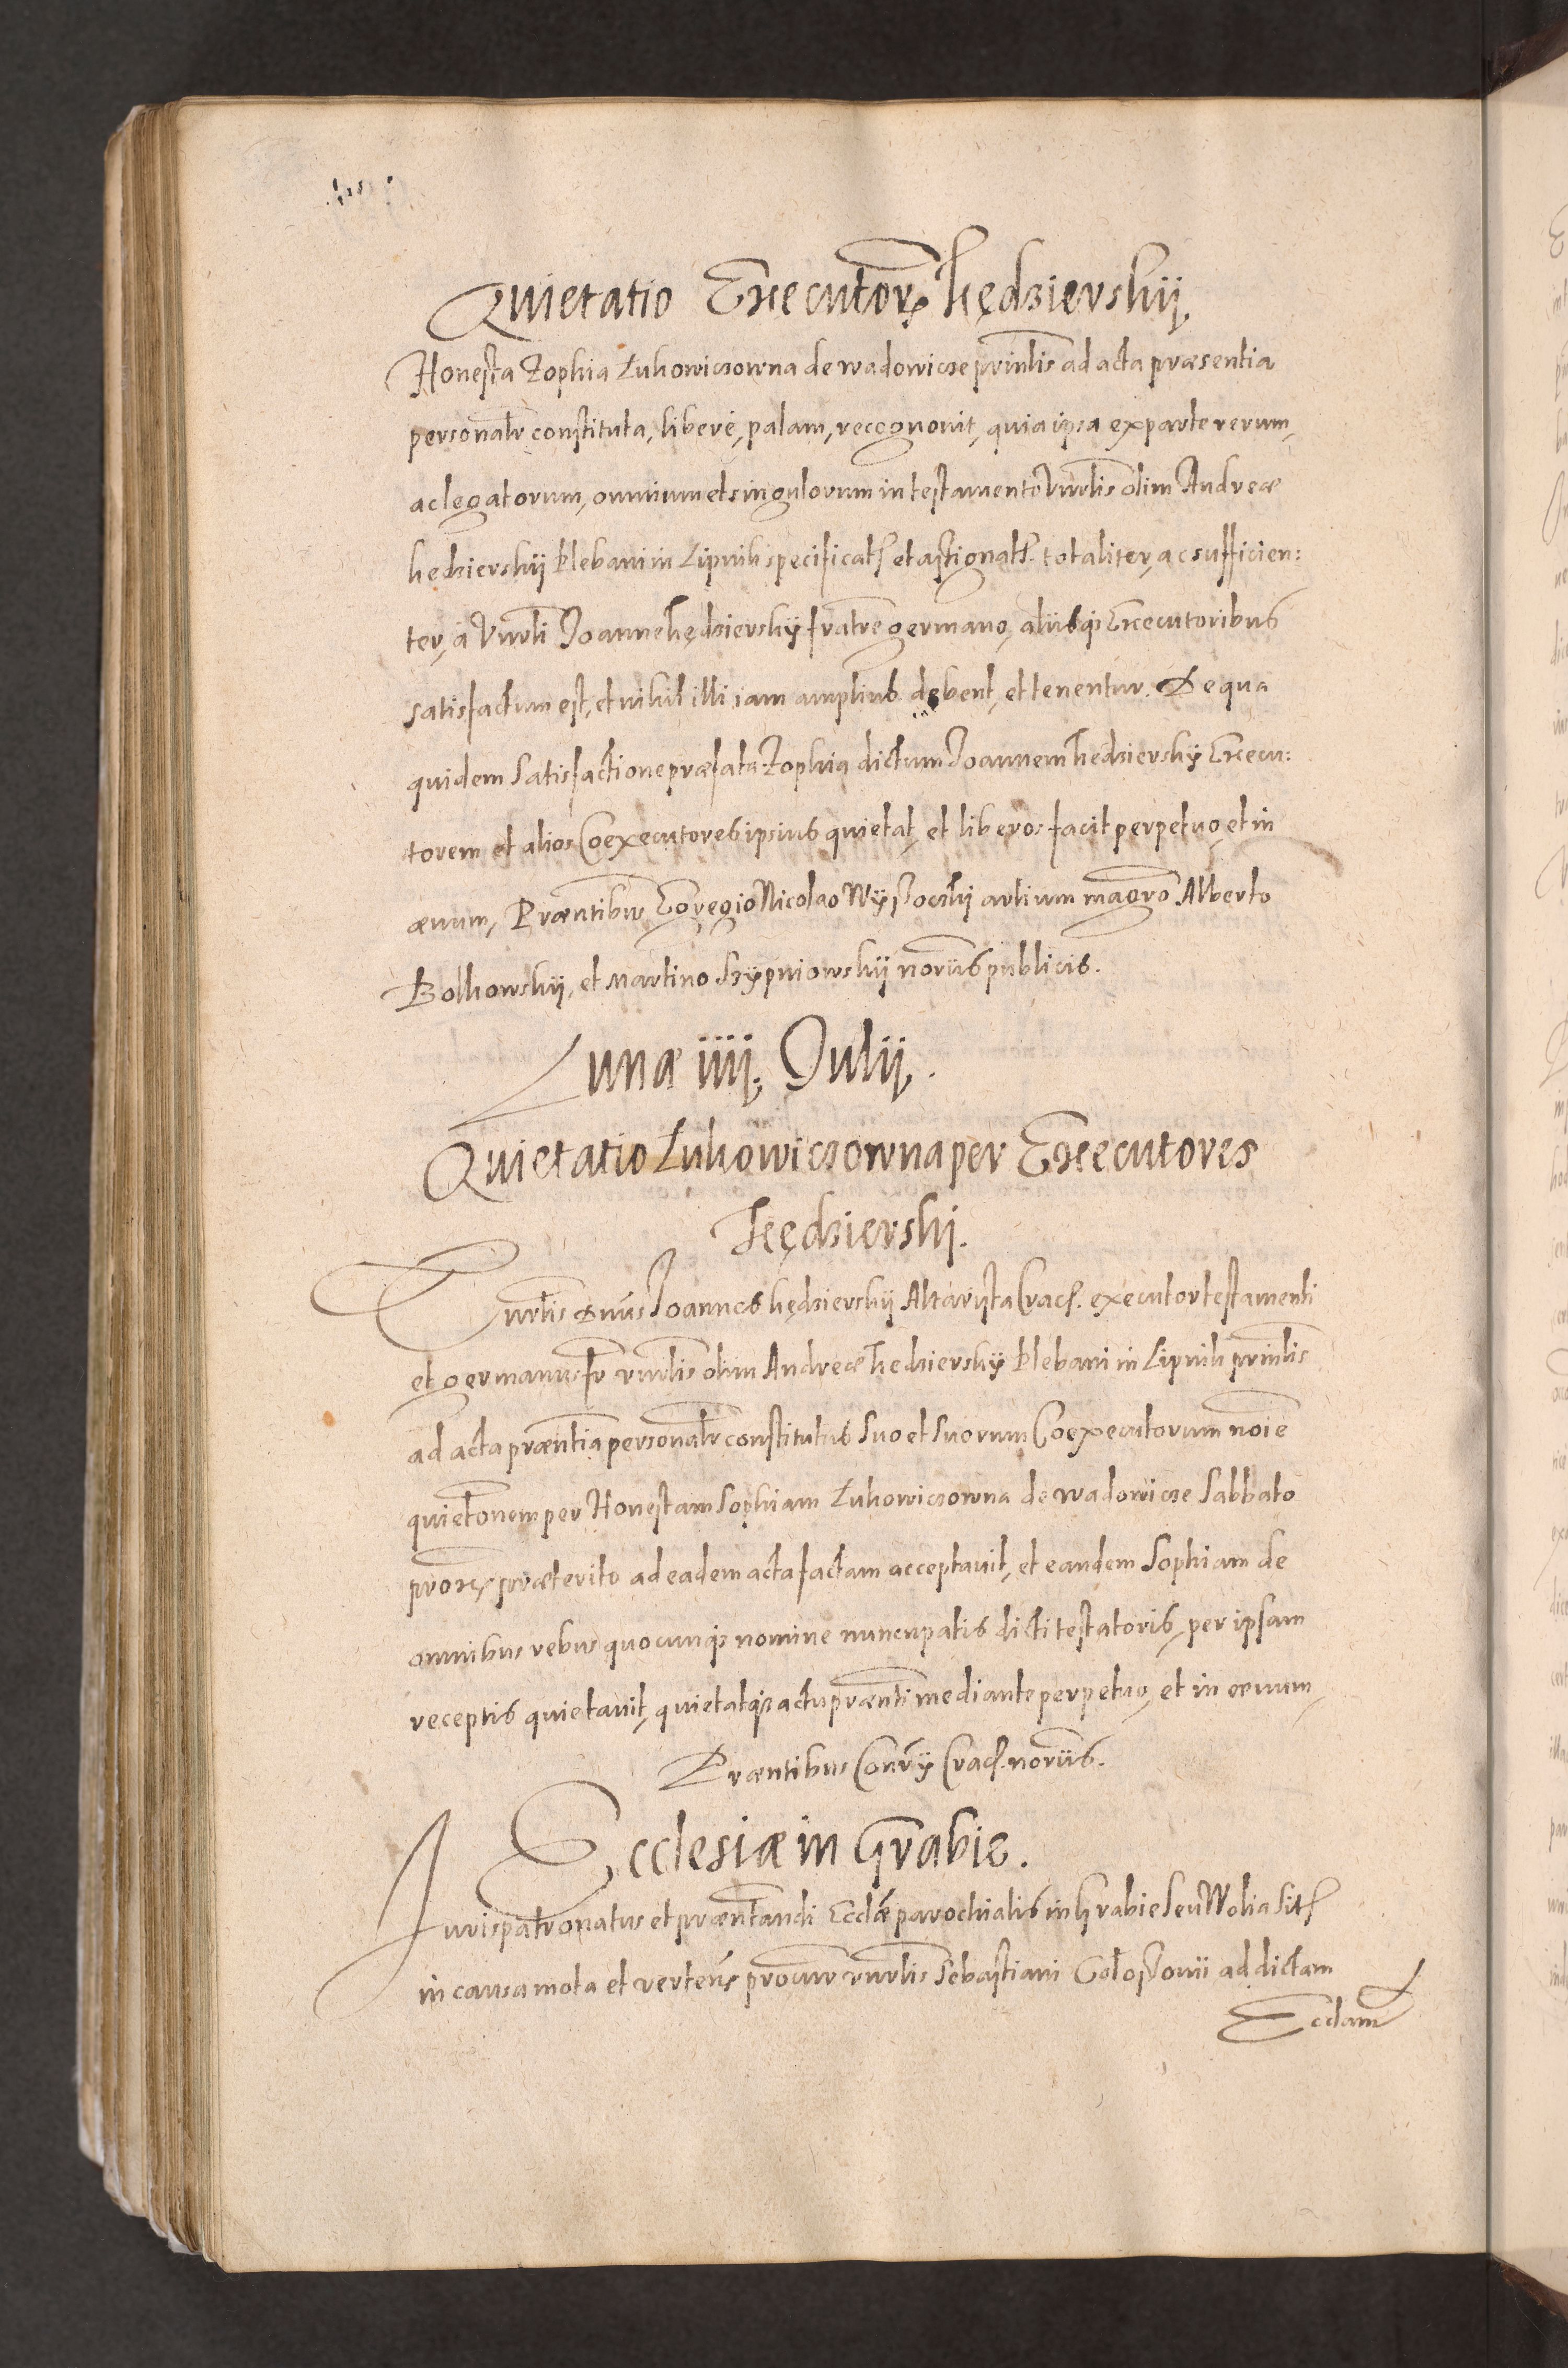 Quietatio Executor. Kędzierskij.
Honesta Zophia Lukowiczowna de wadowicze prīntlis ad acta præsentia
personalr constituta, liberè, palam, recognouit, quia ipsa ex parte rerum,
ac legatorum, omnium et singulorum in testamento Vnrblis olim Andreæ
kedzierskij Plebani in Lipnik specificatr et assignatr. totaliter, ac sufficien:
ter, à Vnrbli Joanne Kędzierskÿ fratre germano, aliisq; Executoribus
satisfactum est, et nihil illi iam amplius debent, et tenentur. De qua
quidem satisfactione præfata Zophia dictum Joannem Kedzierskÿ Execu:
torem et alios Coexecutores ipsius quietat, et liberos facit perpetuo, et in
æuum, Præntibus Egregio Nicolao Wÿssoczkij artium magrō Alberto
Bolkowskij, et Martino Skÿpniowskij noriis publicis.
Lunæ iiij. Julij.
Quietatio Lukowiczowna per Executores
Kędzierskj.
Vnrblis Dnus Joannes kędzierskij Altarista Crac. executor testamenti
et germanus fr vnrblis olim Andreæ Kedzierskÿ Plebani in Lipnik prīntlis
ad acta præntia personalr constitutus suo et suorum Coexecutorum noīe
quietōnem per Honestam Sophiam Lukowiczowna de wadowicze Sabbato
prox. præterito ad eadem acta factam acceptauit, et eandem Sophiam de
omnibus rebus quocunq; nomine nuncupatis dicti testatoris, per ipsam
receptis quietauit, quietatq; actu prænti mediante perpetuo, et in æuum,
Præntibus Conrÿ Crac. noriis.
Ecclesiæ in Grabie.
Jurispatronatus et præntandi Ecclæ parochialis in Grabie seu Wolia sit.
in causa mota et verteñ procur vnrblis Sebastiani ad dictam
Ecclam